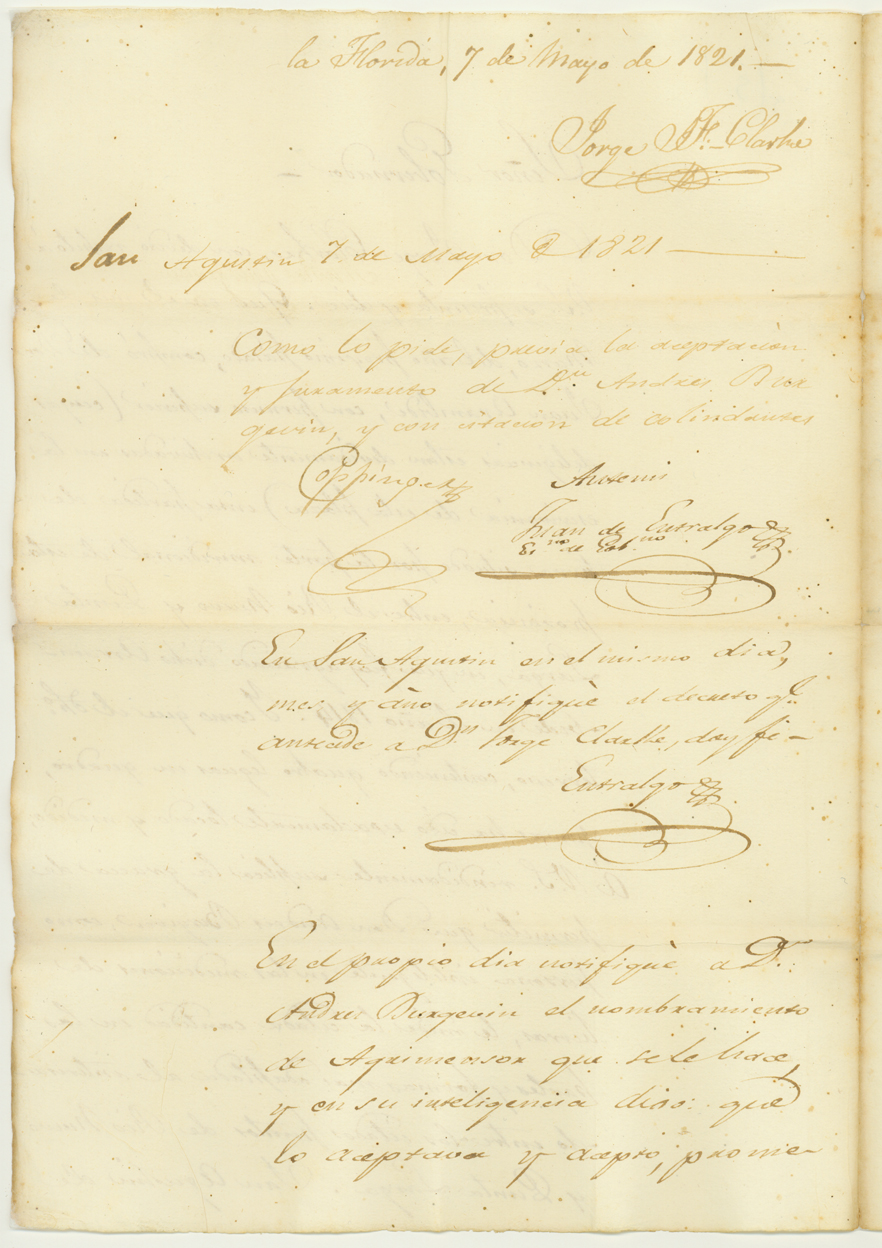 la Florida, 7 de Mayo de 1821. —
Jorge J. F. Clarke
San Agustin 7 de Mayo de 1821 —
Como lo pide, previa la aceptacion
y juramento de Dn. Andres Bur
gevin, y con citacion de colindantes
Coppinger
Antemi
Juan de Entralgo
Esno. de Gobno.
En San Agustin en el mismo dia,
mes y año notifiquè el decreto qe.
antecede a Dn. Jorge Clarke, doy fe —
Entralgo
En el propio dia notifiquè a Dn.
Andres Burgevin el nombramiento
de Agrimensor que se le hace,
y en su inteligencia dixo: que
lo aceptava y aceptó, prome-